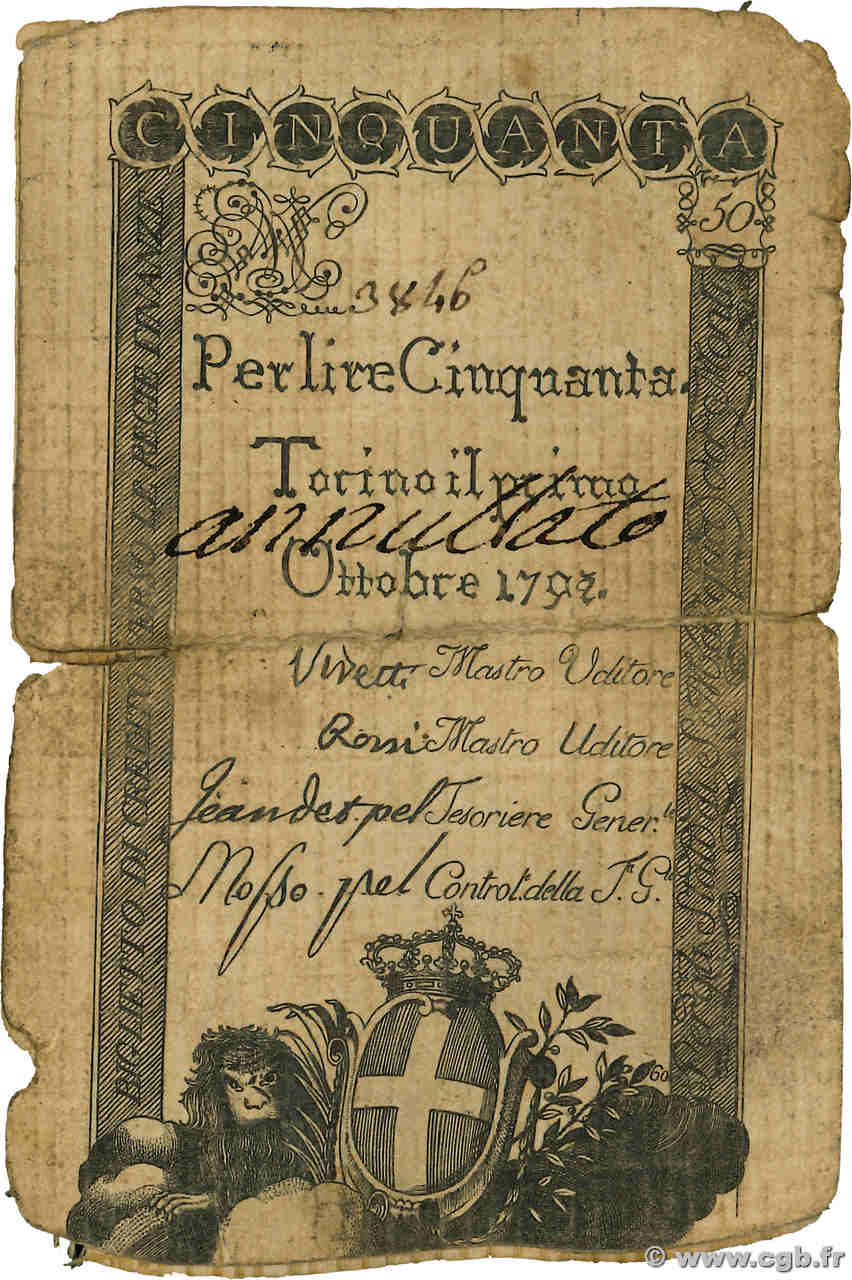 CINQUANTA
50
N 3846
Per lire Cinquanta.
Torino il primo
annullato
Ottobre 1794.
Mastro Uditore
Rossi Mastro Uditore
Jeandet pel Tesoriere Gener.le
Mosso pel Control.e della T. G.
60
BIGLIETTO DI CREDITO VERSO LE REGIE FINANZE
© www.cgb.fr